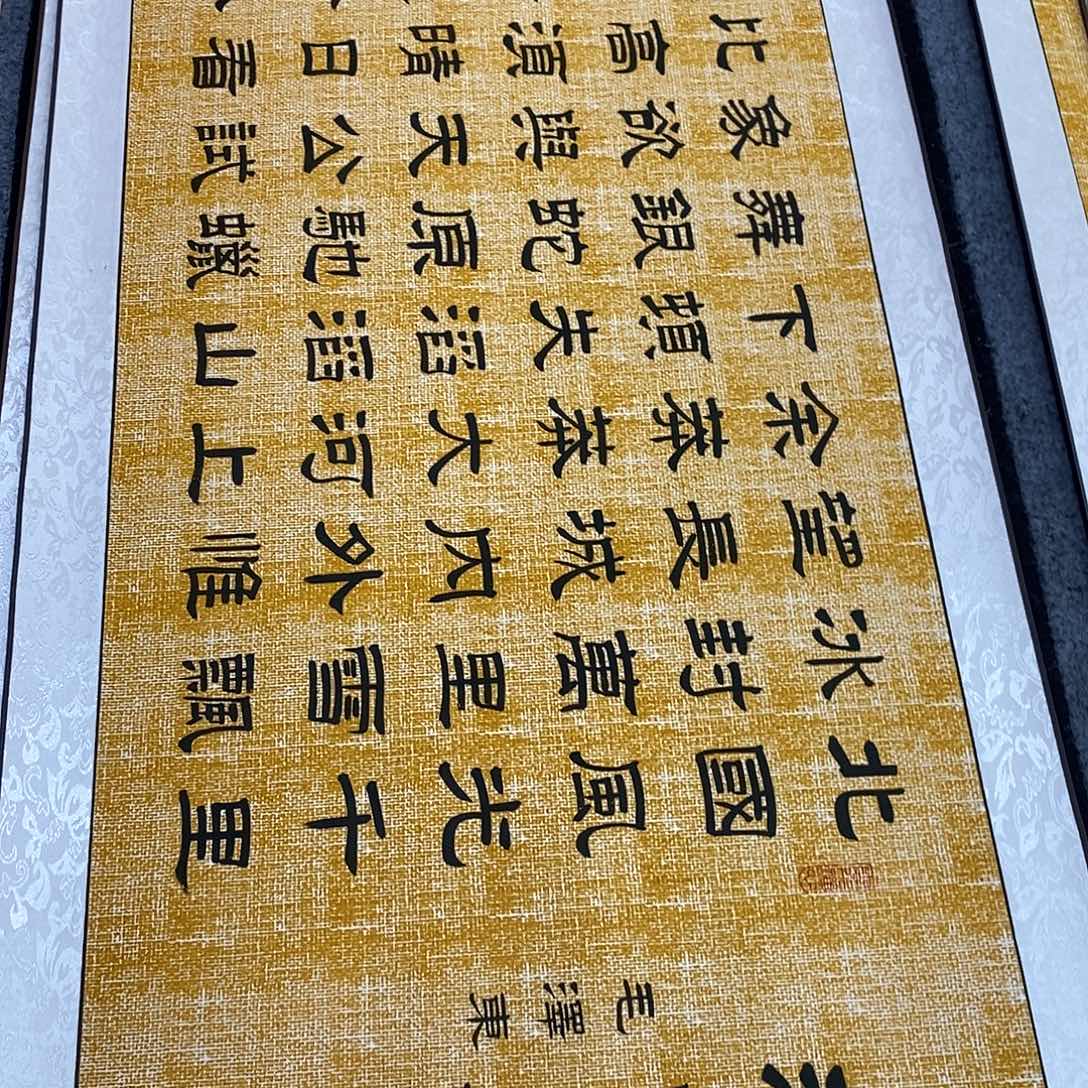 毛澤東
北國風光千里
冰封萬里雪飄
望長城内外惟
余莽莽大河上
下頓失滔滔山
舞銀蛇原馳蠟
象欲與天公試
比高須晴日看